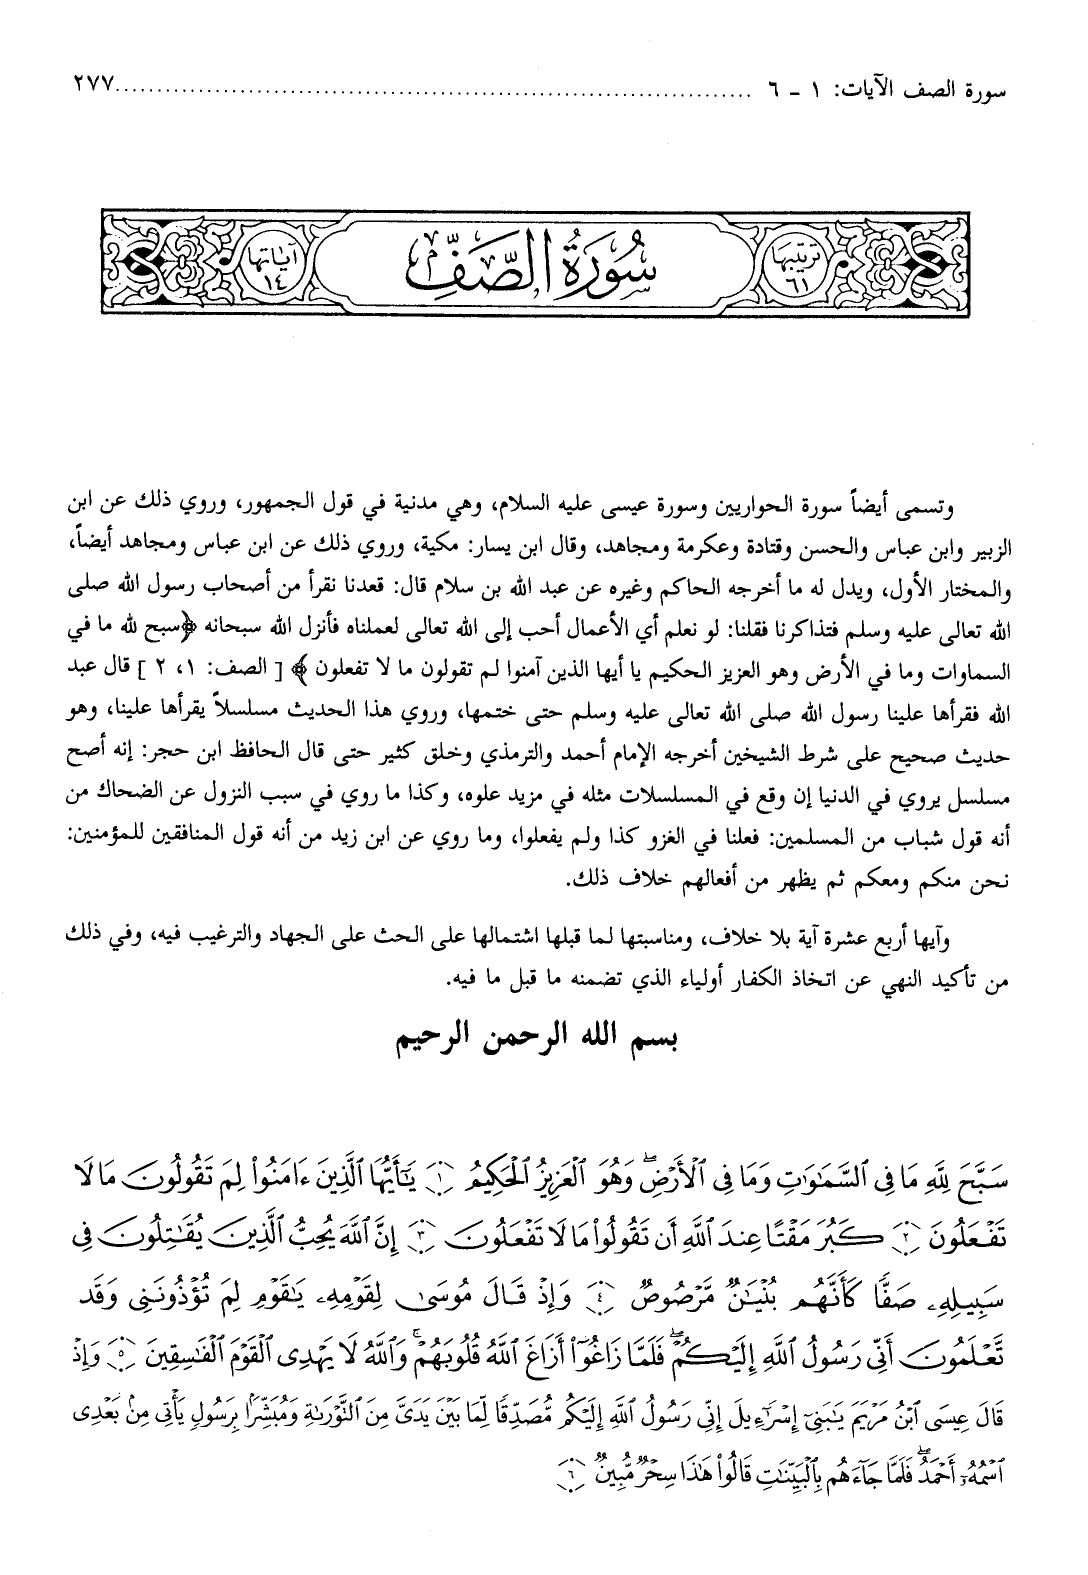 سورة الصف الآيات: ١ - ٦ ........................................................................... ٢٧٧
ترتيبها ٦١
سُورَةُ الصَّفِّ
آياتها ١٤
وتسمى أيضاً سورة الحواريين وسورة عيسى عليه السلام، وهي مدنية في قول الجمهور، وروي ذلك عن ابن
الزبير وابن عباس والحسن وقتادة وعكرمة ومجاهد، وقال ابن يسار: مكية، وروي ذلك عن ابن عباس ومجاهد أيضاً،
والمختار الأول، ويدل له ما أخرجه الحاكم وغيره عن عبد الله بن سلام قال: قعدنا نقرأ من أصحاب رسول الله صلى
الله تعالى عليه وسلم فتذاكرنا فقلنا: لو نعلم أي الأعمال أحب إلى الله تعالى لعملناه فأنزل الله سبحانه ﴿سبح لله ما في
السماوات وما في الأرض وهو العزيز الحكيم يا أيها الذين آمنوا لم تقولون ما لا تفعلون﴾ [ الصف: ١، ٢ ] قال عبد
الله فقرأها علينا رسول الله صلى الله تعالى عليه وسلم حتى ختمها، وروي هذا الحديث مسلسلاً يقرأها علينا، وهو
حديث صحيح على شرط الشيخين أخرجه الإمام أحمد والترمذي وخلق كثير حتى قال الحافظ ابن حجر: إنه أصح
مسلسل يروي في الدنيا إن وقع في المسلسلات مثله في مزيد علوه، وكذا ما روي في سبب النزول عن الضحاك من
أنه قول شباب من المسلمين: فعلنا في الغزو كذا ولم يفعلوا، وما روي عن ابن زيد من أنه قول المنافقين للمؤمنين:
نحن منكم ومعكم ثم يظهر من أفعالهم خلاف ذلك.
وآيها أربع عشرة آية بلا خلاف، ومناسبتها لما قبلها اشتمالها على الحث على الجهاد والترغيب فيه، وفي ذلك
من تأكيد النهي عن اتخاذ الكفار أولياء الذي تضمنه ما قبل ما فيه.
بسم الله الرحمن الرحيم
سَبَّحَ لِلَّهِ مَا فِى ٱلسَّمَٰوَٰتِ وَمَا فِى ٱلْأَرْضِ ۖ وَهُوَ ٱلْعَزِيزُ ٱلْحَكِيمُ ۝١ يَٰٓأَيُّهَا ٱلَّذِينَ ءَامَنُوا۟ لِمَ تَقُولُونَ مَا لَا
تَفْعَلُونَ ۝٢ كَبُرَ مَقْتًا عِندَ ٱللَّهِ أَن تَقُولُوا۟ مَا لَا تَفْعَلُونَ ۝٣ إِنَّ ٱللَّهَ يُحِبُّ ٱلَّذِينَ يُقَٰتِلُونَ فِى
سَبِيلِهِۦ صَفًّا كَأَنَّهُم بُنْيَٰنٌ مَّرْصُوصٌ ۝٤ وَإِذْ قَالَ مُوسَىٰ لِقَوْمِهِۦ يَٰقَوْمِ لِمَ تُؤْذُونَنِى وَقَد
تَّعْلَمُونَ أَنِّى رَسُولُ ٱللَّهِ إِلَيْكُمْ ۖ فَلَمَّا زَاغُوٓا۟ أَزَاغَ ٱللَّهُ قُلُوبَهُمْ ۚ وَٱللَّهُ لَا يَهْدِى ٱلْقَوْمَ ٱلْفَٰسِقِينَ ۝٥ وَإِذْ
قَالَ عِيسَى ٱبْنُ مَرْيَمَ يَٰبَنِىٓ إِسْرَٰٓءِيلَ إِنِّى رَسُولُ ٱللَّهِ إِلَيْكُم مُّصَدِّقًا لِّمَا بَيْنَ يَدَىَّ مِنَ ٱلتَّوْرَىٰةِ وَمُبَشِّرًۢا بِرَسُولٍ يَأْتِى مِنۢ بَعْدِى
ٱسْمُهُۥٓ أَحْمَدُ ۖ فَلَمَّا جَآءَهُم بِٱلْبَيِّنَٰتِ قَالُوا۟ هَٰذَا سِحْرٌ مُّبِينٌ ۝٦